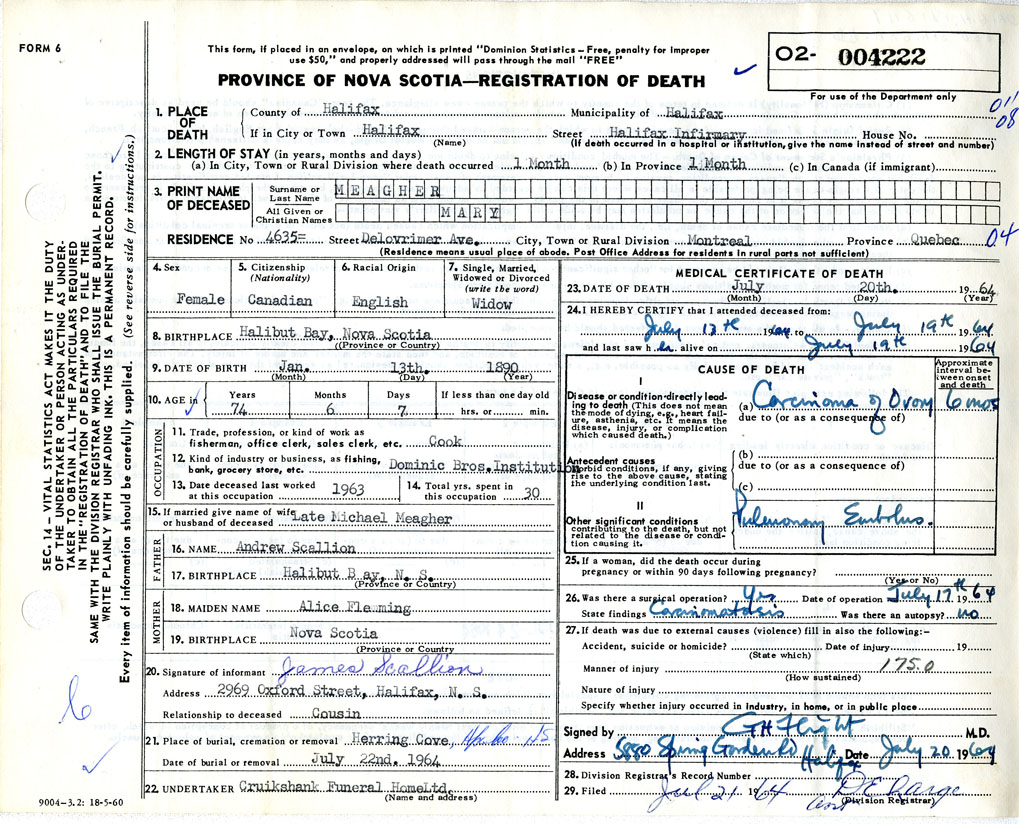 FORM 6
This form, if placed in an envelope, on which is printed "Dominion Statistics – Free, penalty for improper
use $50," and properly addressed will pass through the mail "FREE"
PROVINCE OF NOVA SCOTIA—REGISTRATION OF DEATH
02- 004222
For use of the Department only
SEC. 14 – VITAL STATISTICS ACT MAKES IT THE DUTY
OF THE UNDERTAKER OR PERSON ACTING AS UNDER-
TAKER TO OBTAIN ALL THE PARTICULARS REQUIRED
IN THE "REGISTRATION OF DEATH" AND TO FILE THE
SAME WITH THE DIVISION REGISTRAR WHO SHALL ISSUE THE BURIAL PERMIT.
WRITE PLAINLY WITH UNFADING INK. THIS IS A PERMANENT RECORD.
Every item of information should be carefully supplied. (See reverse side for instructions.)
1. PLACE OF DEATH
County of Halifax Municipality of Halifax
011
08
If in City or Town Halifax Street Halifax Infirmary House No.
(Name) (If death occurred in a hospital or institution, give the name instead of street and number)
2. LENGTH OF STAY (in years, months and days)
(a) In City, Town or Rural Division where death occurred 1 Month (b) In Province 1 Month (c) In Canada (if immigrant)
3. PRINT NAME OF DECEASED
Surname or Last Name MEAGHER
All Given or Christian Names MARY
RESIDENCE No 4635= Street Delovrimer Ave. City, Town or Rural Division Montreal Province Quebec 04
(Residence means usual place of abode. Post Office Address for residents in rural parts not sufficient)
4. Sex Female
5. Citizenship (Nationality) Canadian
6. Racial Origin English
7. Single, Married, Widowed or Divorced (write the word) Widow
8. BIRTHPLACE Halibut Bay, Nova Scotia
((Province or Country)
9. DATE OF BIRTH Jan. 13th. 1890
(Month) (Day) (Year)
10. AGE in Years 74 Months 6 Days 7 If less than one day old hrs. or min.
OCCUPATION
11. Trade, profession, or kind of work as
fisherman, office clerk, sales clerk, etc. Cook
12. Kind of industry or business, as fishing,
bank, grocery store, etc. Dominic Bros. Institution
13. Date deceased last worked at this occupation 1963
14. Total yrs. spent in this occupation 30
15. If married give name of wife or husband of deceased Late Michael Meagher
FATHER
16. NAME Andrew Scallion
17. BIRTHPLACE Halibut B ay, N. S.
(Province or Country)
MOTHER
18. MAIDEN NAME Alice Fleming
19. BIRTHPLACE Nova Scotia
(Province or Country)
20. Signature of informant James Scallion
Address 2969 Oxford Street, Halifax, N. S.
Relationship to deceased Cousin
21. Place of burial, cremation or removal Herring Cove,
Date of burial or removal July 22nd. 1964
22. UNDERTAKER Cruikshank Funeral HomeLtd.
(Name and address)
9004-3.2: 18-5-60
MEDICAL CERTIFICATE OF DEATH
23. DATE OF DEATH July 20th. 1964
(Month) (Day) (Year)
24. I HEREBY CERTIFY that I attended deceased from:
July 13th 1964 to July 19th 1964
and last saw her alive on July 19th 1964
CAUSE OF DEATH
Approximate interval between onset and death
I
Disease or condition directly lead-
ing to death (This does not mean
the mode of dying, e.g., heart fail-
ure, asthenia, etc. It means the
disease, injury, or complication
which caused death.)
(a) Carcinoma of Ovary 6 mos
due to (or as a consequence of)
Antecedent causes
Morbid conditions, if any, giving
rise to the above cause, stating
the underlying condition last.
(b)
due to (or as a consequence of)
(c)
II
Other significant conditions
contributing to the death, but not
related to the disease or condi-
tion causing it.
Pulmonary Embolus.
25. If a woman, did the death occur during
pregnancy or within 90 days following pregnancy?
(Yes or No)
26. Was there a surgical operation? Yes Date of operation July 17th 1964
State findings Carcinomatosis Was there an autopsy? no
27. If death was due to external causes (violence) fill in also the following:–
Accident, suicide or homicide? Date of injury 19
(State which)
Manner of injury 175.0
(How sustained)
Nature of injury
Specify whether injury occurred in industry, in home, or in public place
Signed by G H Flight M.D.
Address 5880 Spring Garden Rd Halifax Date July 20 1964
28. Division Registrar's Record Number
29. Filed Jul 21 1964
(Division Registrar)